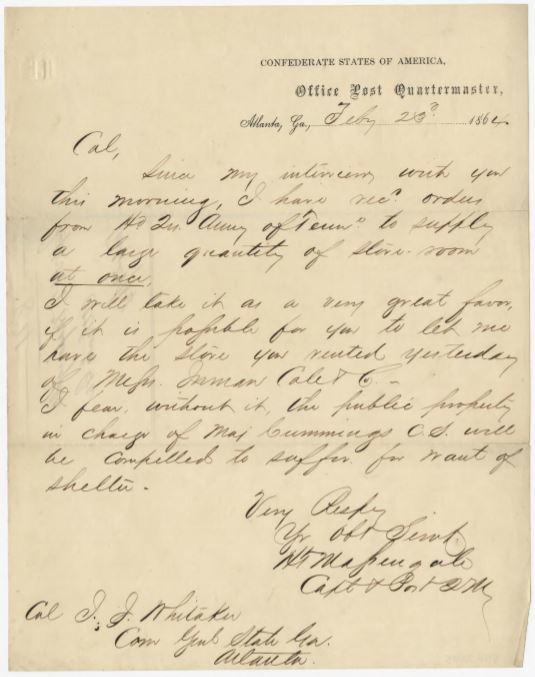 CONFEDERATE STATES OF AMERICA,
Office Post Quartermaster,
Atlanta, Ga., Feby 23d 1864
Col,
Since my interview with you
this morning, I have recd. orders
from Hd Qrs. Army of Tenno to supply
a large quantity of store-room
at once.
I will take it as a very great favor,
if it is possible for you to let me
have the store you rented yesterday
of Messrs. Inman Cole & C. -
I fear, without it, the public property
in charge of Maj Cummings C.S. will
be compelled to suffer for want of
shelter.-
Very Respy
Yr Obt Servt.
Massengale
Capt & Post QM
Col J. J. Whitaker
Com Genl State Ga.
Atlanta.